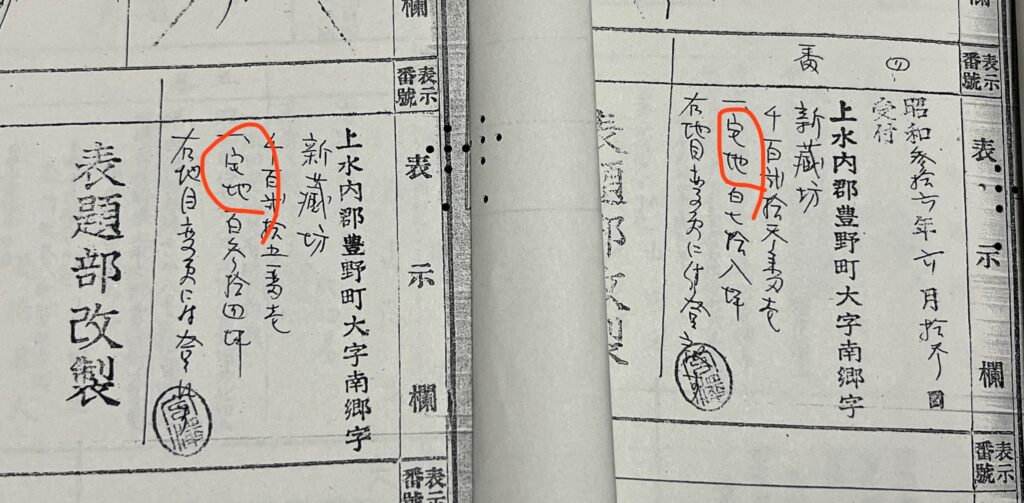 表示番號
表示欄
昭和参拾六年六月拾六日
受付
上水内郡豊野町大字南郷字
新藏坊
一、宅地 百七拾八坪
右地目変更に付登記
番
表示番號
表示番號
表示欄
上水内郡豊野町大字南郷字
新藏坊
千百弐拾五番壱
一、宅地 百参拾四坪
右地目変更に付登記
表題部改製
表示番號